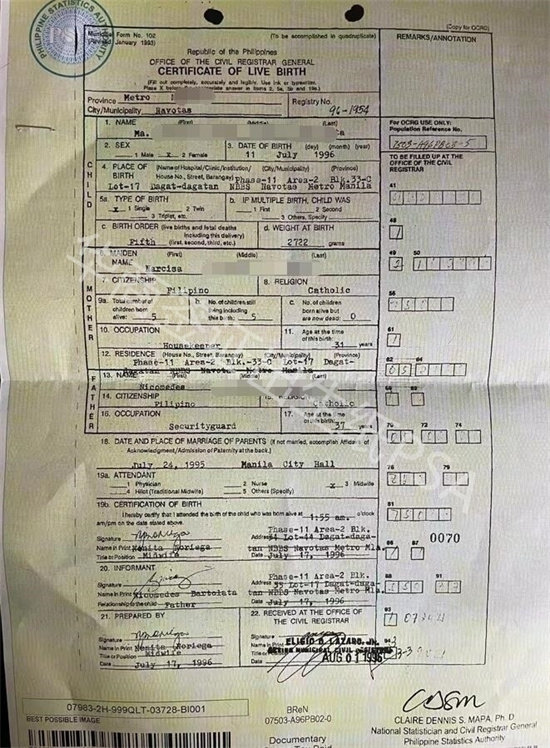 PHILIPPINE STATISTICS AUTHORITY
Municipal Form No. 102
(Revised January 1993)
(To be accomplished in quadruplicate)
(Copy for OCRG)
Republic of the Philippines
OFFICE OF THE CIVIL REGISTRAR GENERAL
CERTIFICATE OF LIVE BIRTH
(Fill out completely, accurately and legibly. Use ink or typewriter.
Place X before the appropriate answer in items 2, 5a, 5b and 19a.)
REMARKS/ANNOTATION
Province Metro
City/Municipality Navotas
Registry No. 96-1954
1. NAME (First) (Middle) (Last)
Ma.
For OCRG USE ONLY:
Population Reference No.
7503-A96PB02-5
2. SEX
1 Male x 2 Female
3. DATE OF BIRTH (day) (month) (year)
11 July 1996
TO BE FILLED UP AT THE
OFFICE OF THE CIVIL
REGISTRAR
CHILD
4. PLACE OF BIRTH (Name of Hospital/Clinic/Institution/ (City/Municipality) (Province)
House No., Street, Barangay)
Phase-11 Area-2 Blk.33-C
Lot-17 Dagat-dagatan NBBS Navotas Metro Manila
41
5a. TYPE OF BIRTH
x 1 Single 2 Twin
3 Triplet, etc.
b. IF MULTIPLE BIRTH, CHILD WAS
1 First 2 Second
3 Others, Specify
48
c. BIRTH ORDER (live births and fetal deaths
including this delivery)
Fifth (first, second, third, etc.)
d. WEIGHT AT BIRTH
2722 grams
49 50
MOTHER
6. MAIDEN NAME (First) (Middle) (Last)
Narcisa
7. CITIZENSHIP
Filipino
8. RELIGION
Catholic
56
9a. Total number of
children born
alive: 5
b. No. of children still
living including
this birth: 5
c. No. of children
born alive but
are now dead: 0
10. OCCUPATION
Housekeeper
11. Age at the time
of this birth:
31 years
61
12. RESIDENCE (House No., Street, Barangay) (City/Municipality) (Province)
Phase-11 Area-2 Blk.-33-C Lot-17 Dagat-
dagatan NBBS Navotas Metro Manila
62 64
FATHER
13. NAME (First) (Middle) (Last)
Nicomedes
14. CITIZENSHIP
Filipino
15. RELIGION
Catholic
68 69
16. OCCUPATION
Securityguard
17. Age at the time
of this birth:
37 years
70 72 74
18. DATE AND PLACE OF MARRIAGE OF PARENTS (If not married, accomplish Affidavit of
Acknowledgment/Admission of Paternity at the back.)
July 24, 1995 Manila City Hall
19a. ATTENDANT
1 Physician 2 Nurse x 3 Midwife
4 Hilot (Traditional Midwife) 5 Others (Specify)
76 79
19b. CERTIFICATION OF BIRTH
I hereby certify that I attended the birth of the child who was born alive at 1:55 am. o'clock
am/pm on the date stated above.
81
Signature
Name in Print Menita Noriega
Title or Position Midwife
Phase-11 Area-2 Blk.
Address 34 Lot-44 Dagat-daga-
tan NBBS Navotas Metro Mla.
Date July 17, 1996
0070
86 87
20. INFORMANT
Signature
Name in Print Nicomedes Bartolata
Relationship to the child Father
Phase-11 Area-2 Blk.
Address 33 Lot-17 Dagat-daga-
tan NBBS Navotas Metro Mla.
Date July 17, 1996
88 91
21. PREPARED BY
Signature
Name in Print Menita Noriega
Title or Position Midwife
Date July 17, 1996
22. RECEIVED AT THE OFFICE OF
THE CIVIL REGISTRAR
Signature
Name in Print ELIGIO D. LAZARO, Jr.
Title or Position ACTING MUNICIPAL CIVIL REGISTRAR
Date AUG 01 1996
07983-2H-999QLT-03728-BI001
BEST POSSIBLE IMAGE
BReN
07503-A96PB02-0
Documentary
CLAIRE DENNIS S. MAPA, Ph. D.
National Statistician and Civil Registrar General
Philippine Statistics Authority